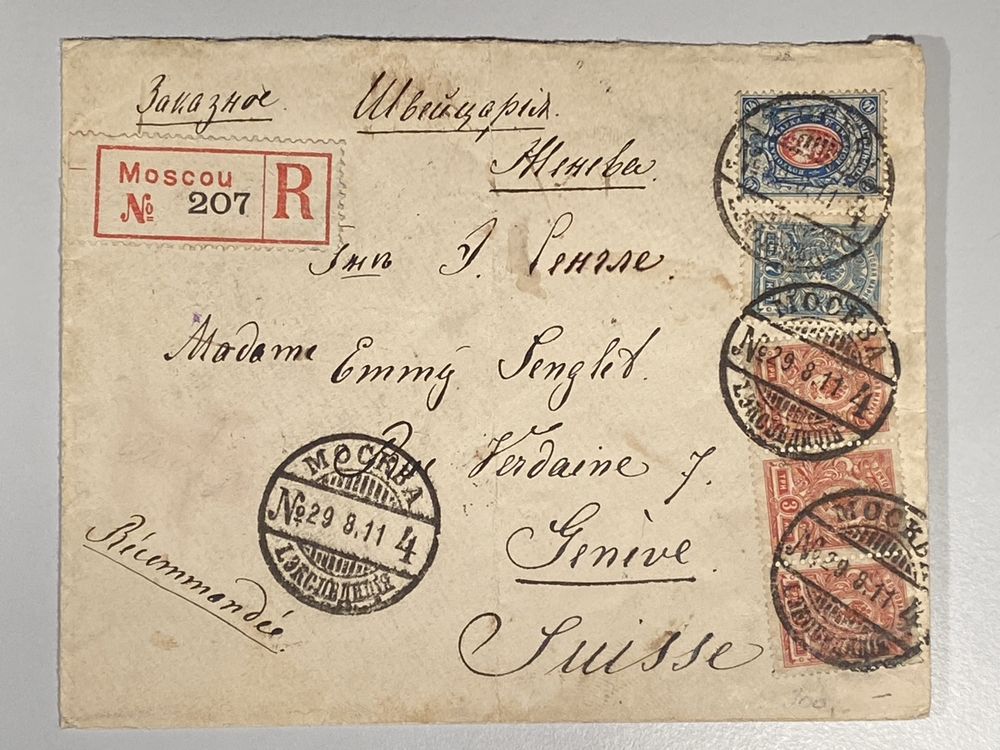 Заказное.
Швейцарія.
Женева.
Moscou
№ 207
R
Madame Emmy Senglet.
Rue Verdaine 7.
Genève.
Suisse
Récommandée
МОСКВА
№ 29 8.11 4
1.ЭКСПЕДИЦІЯ
МОСКВА
№ 29.8.11 4
1.ЭКСПЕДИЦІЯ
МОСКВА
№ 29 8.11 4
1.ЭКСПЕДИЦІЯ
14
7
3
ТРИ